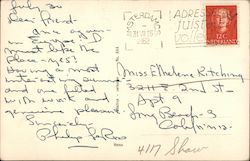 July 30
Dear friend -
am again
in Europe. I
must like the
place - yes?
Having a most
interesting summer
and one filled
with work and
genuine pleasure.
Sincerely
Philip
AMSTERDAM
1952
ADRES
JUIST
NEDERLAND
12 C
Miss Ethelene Kitching
3211 E. 2nd St.
Apt 9
Long Beach - 3
California
4117 Shaw